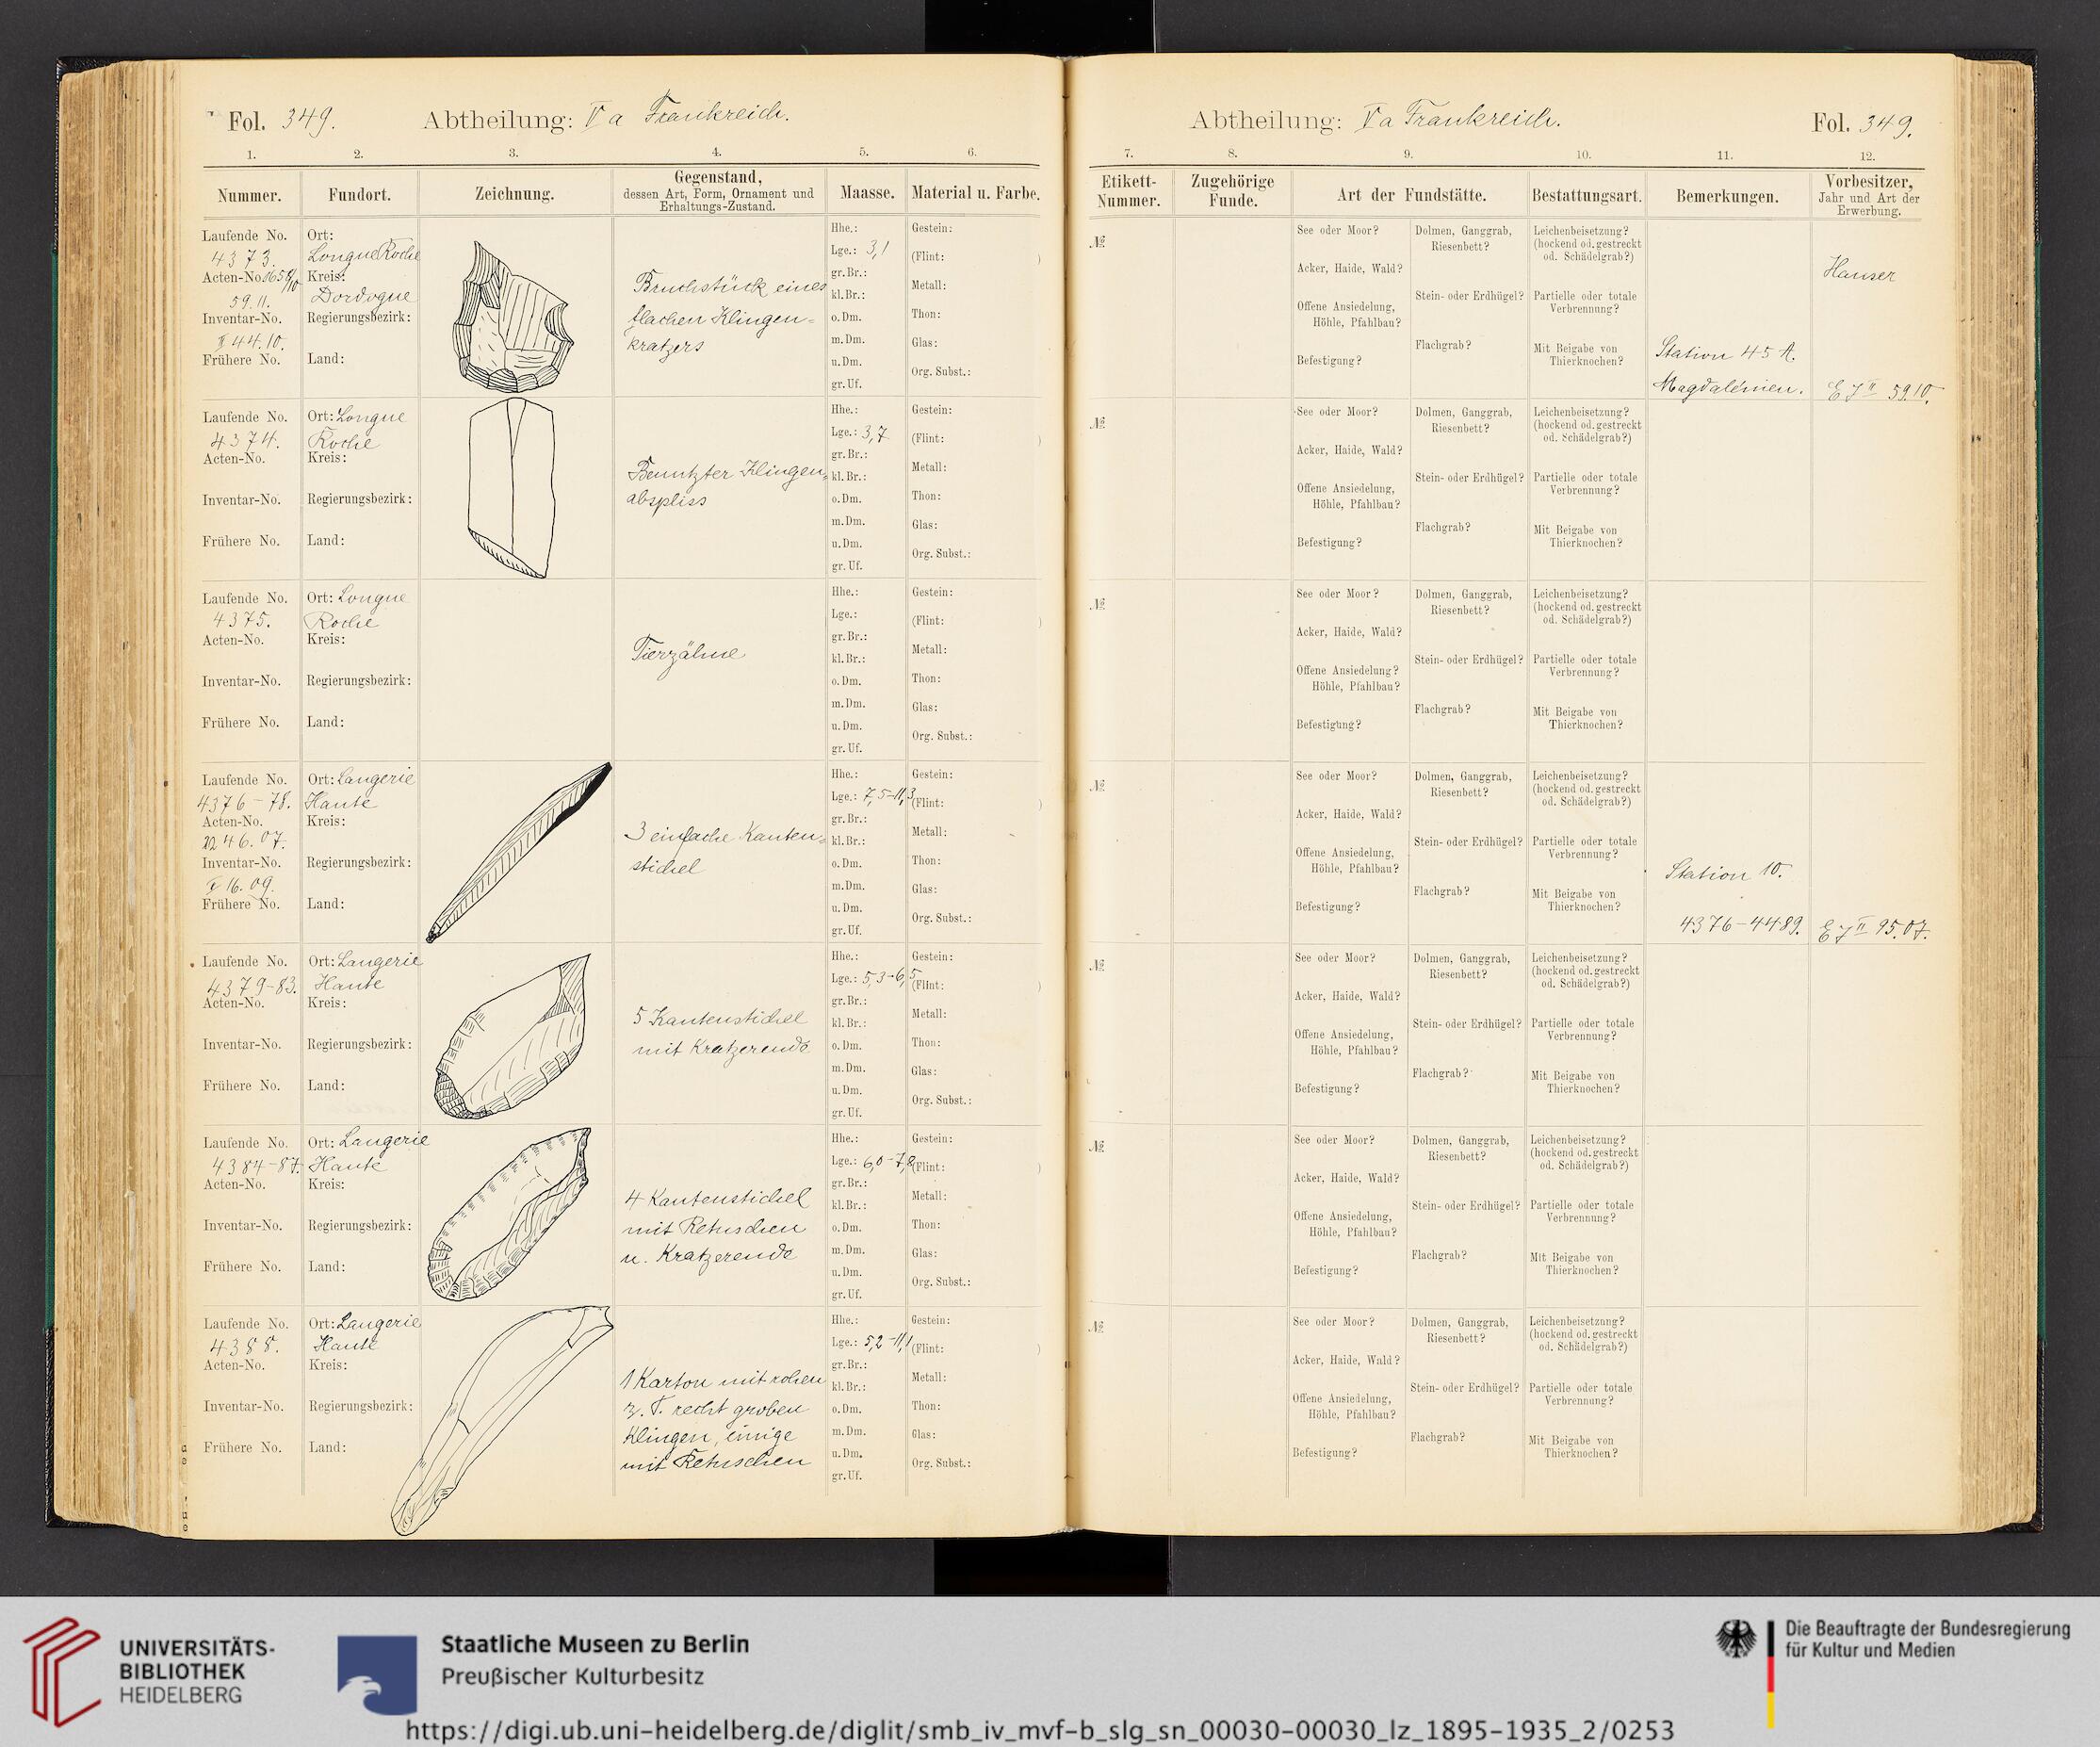 Fol. 349. Abtheilung: V a Frankreich.
1. 2. 3. 4. 5. 6.
Nummer. Fundort. Zeichnung. Gegenstand, dessen Art, Form, Ornament und Erhaltungs-Zustand. Maasse. Material u. Farbe.
Laufende No. 4373.
Acten-No.
59.11.
Inventar-No.
II 44.10.
Frühere No.
Ort:
Longue Roche
Kreis:
Dordogne
Regierungsbezirk:
Land:
Bruchstück eines
flachen Klingen-
kratzers
Hhe.:
Lge.: 3,1
gr. Br.:
kl. Br.:
o. Dm.
m. Dm.
u. Dm.
gr. Uf.
Gestein:
(Flint: )
Metall:
Thon:
Glas:
Org. Subst.:
Laufende No.
4374.
Acten-No.
Inventar-No.
Frühere No.
Ort: Longue
Roche
Kreis:
Regierungsbezirk:
Land:
Benutzter Klingen-
abspliss
Hhe.:
Lge.: 3,7
gr. Br.:
kl. Br.:
o. Dm.
m. Dm.
u. Dm.
gr. Uf.
Gestein:
(Flint: )
Metall:
Thon:
Glas:
Org. Subst.:
Laufende No.
4375.
Acten-No.
Inventar-No.
Frühere No.
Ort: Longue
Roche
Kreis:
Regierungsbezirk:
Land:
Tierzähne
Hhe.:
Lge.:
gr. Br.:
kl. Br.:
o. Dm.
m. Dm.
u. Dm.
gr. Uf.
Gestein:
(Flint: )
Metall:
Thon:
Glas:
Org. Subst.:
Laufende No.
4376-78.
Acten-No.
46.07.
Inventar-No.
16.09.
Frühere No.
Ort: Laugerie
Haute
Kreis:
Regierungsbezirk:
Land:
3 einfache Kanten-
stichel
Hhe.:
Lge.: 7,5-11,3
gr. Br.:
kl. Br.:
o. Dm.
m. Dm.
u. Dm.
gr. Uf.
Gestein:
(Flint: )
Metall:
Thon:
Glas:
Org. Subst.:
Laufende No.
4379-83.
Acten-No.
Inventar-No.
Frühere No.
Ort: Laugerie
Haute
Kreis:
Regierungsbezirk:
Land:
5 Kantenstichel
mit Kratzerende
Hhe.:
Lge.: 5,3-6,5
gr. Br.:
kl. Br.:
o. Dm.
m. Dm.
u. Dm.
gr. Uf.
Gestein:
(Flint: )
Metall:
Thon:
Glas:
Org. Subst.:
Laufende No.
4384-87.
Acten-No.
Inventar-No.
Frühere No.
Ort: Laugerie
Haute
Kreis:
Regierungsbezirk:
Land:
4 Kantenstichel
mit Retuschen
u. Kratzerende
Hhe.:
Lge.: 6,0-7,8
gr. Br.:
kl. Br.:
o. Dm.
m. Dm.
u. Dm.
gr. Uf.
Gestein:
(Flint: )
Metall:
Thon:
Glas:
Org. Subst.:
Laufende No.
4388.
Acten-No.
Inventar-No.
Frühere No.
Ort: Laugerie
Haute
Kreis:
Regierungsbezirk:
Land:
1 Karton mit rohen
z. T. recht groben
Klingen, einige
mit Retuschen
Hhe.:
Lge.: 5,2-11,1
gr. Br.:
kl. Br.:
o. Dm.
m. Dm.
u. Dm.
gr. Uf.
Gestein:
(Flint: )
Metall:
Thon:
Glas:
Org. Subst.:
Abtheilung: V a Frankreich. Fol. 349.
7. 8. 9. 10. 11. 12.
Etikett-Nummer. Zugehörige Funde. Art der Fundstätte. Bestattungsart. Bemerkungen. Vorbesitzer, Jahr und Art der Erwerbung.
№
See oder Moor?
Acker, Haide, Wald?
Offene Ansiedelung,
Höhle, Pfahlbau?
Befestigung?
Dolmen, Ganggrab,
Riesenbett?
Stein- oder Erdhügel?
Flachgrab?
Leichenbeisetzung?
(hockend od. gestreckt
od. Schädelgrab?)
Partielle oder totale
Verbrennung?
Mit Beigabe von
Thierknochen?
Station 45 A.
Magdalénien.
Hauser
E J II 59.10.
№
See oder Moor?
Acker, Haide, Wald?
Offene Ansiedelung,
Höhle, Pfahlbau?
Befestigung?
Dolmen, Ganggrab,
Riesenbett?
Stein- oder Erdhügel?
Flachgrab?
Leichenbeisetzung?
(hockend od. gestreckt
od. Schädelgrab?)
Partielle oder totale
Verbrennung?
Mit Beigabe von
Thierknochen?
№
See oder Moor?
Acker, Haide, Wald?
Offene Ansiedelung?
Höhle, Pfahlbau?
Befestigung?
Dolmen, Ganggrab,
Riesenbett?
Stein- oder Erdhügel?
Flachgrab?
Leichenbeisetzung?
(hockend od. gestreckt
od. Schädelgrab?)
Partielle oder totale
Verbrennung?
Mit Beigabe von
Thierknochen?
№
See oder Moor?
Acker, Haide, Wald?
Offene Ansiedelung,
Höhle, Pfahlbau?
Befestigung?
Dolmen, Ganggrab,
Riesenbett?
Stein- oder Erdhügel?
Flachgrab?
Leichenbeisetzung?
(hockend od. gestreckt
od. Schädelgrab?)
Partielle oder totale
Verbrennung?
Mit Beigabe von
Thierknochen?
Station 10.
4376-4489.
E J II 95.07.
№
See oder Moor?
Acker, Haide, Wald?
Offene Ansiedelung,
Höhle, Pfahlbau?
Befestigung?
Dolmen, Ganggrab,
Riesenbett?
Stein- oder Erdhügel?
Flachgrab?
Leichenbeisetzung?
(hockend od. gestreckt
od. Schädelgrab?)
Partielle oder totale
Verbrennung?
Mit Beigabe von
Thierknochen?
№
See oder Moor?
Acker, Haide, Wald?
Offene Ansiedelung,
Höhle, Pfahlbau?
Befestigung?
Dolmen, Ganggrab,
Riesenbett?
Stein- oder Erdhügel?
Flachgrab?
Leichenbeisetzung?
(hockend od. gestreckt
od. Schädelgrab?)
Partielle oder totale
Verbrennung?
Mit Beigabe von
Thierknochen?
№
See oder Moor?
Acker, Haide, Wald?
Offene Ansiedelung,
Höhle, Pfahlbau?
Befestigung?
Dolmen, Ganggrab,
Riesenbett?
Stein- oder Erdhügel?
Flachgrab?
Leichenbeisetzung?
(hockend od. gestreckt
od. Schädelgrab?)
Partielle oder totale
Verbrennung?
Mit Beigabe von
Thierknochen?
UNIVERSITÄTS-
BIBLIOTHEK
HEIDELBERG
Staatliche Museen zu Berlin
Preußischer Kulturbesitz
Die Beauftragte der Bundesregierung
für Kultur und Medien
https://digi.ub.uni-heidelberg.de/diglit/smb_iv_mvf-b_slg_sn_00030-00030_lz_1895-1935_2/0253